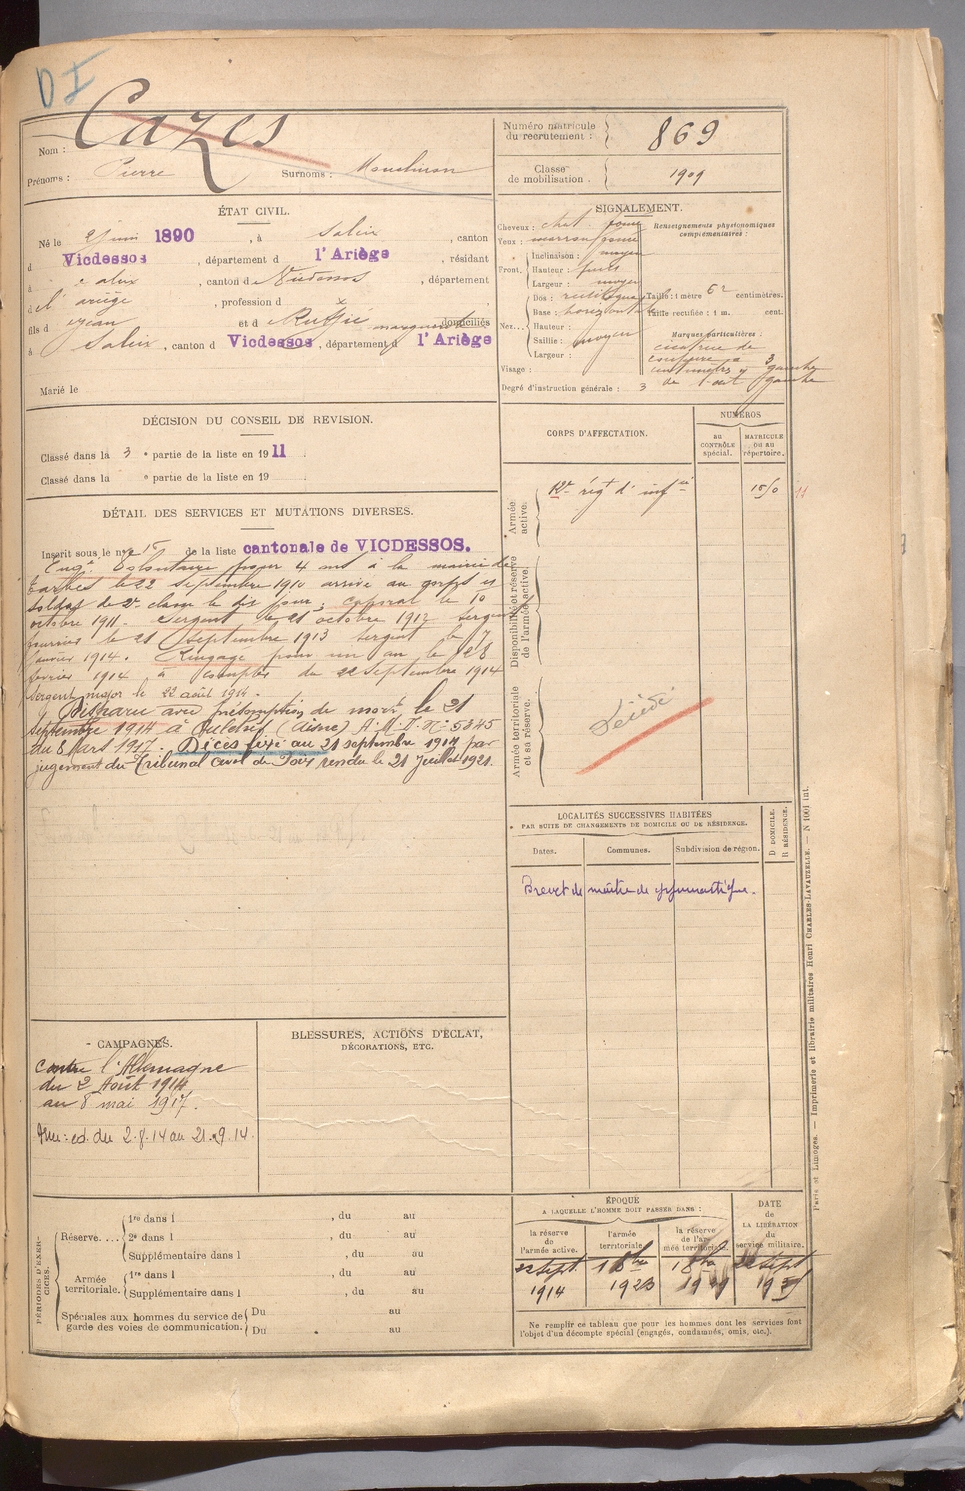 DI
Nom : Cazes
Prénoms : Pierre Surnoms :
Numéro matricule du recrutement : 869
Classe de mobilisation . 1909
ÉTAT CIVIL.
Né le 2 juin 1890 , à Saleix , canton
d Vicdessos , département d l'Ariège , résidant
à , canton de Vicdessos , département
de l' ariège , profession d x ,
fils d Jean et d Ruffié marguerite domiciliés
à Saleix , canton d Vicdessos , département d l'Ariège
Marié le
SIGNALEMENT.
Cheveux : chat. foncé
Yeux : marron foncé
Front. Inclinaison : moyen
Hauteur : fuite
Largeur : moyen
Nez... Dos : rectiligne
Base : horizontale
Hauteur :
Saillie : moyen
Largeur :
Visage :
Renseignements physionomiques complémentaires :
Taille : 1 mètre 62 centimètres.
Taille rectifiée : 1 m. cent.
Marques particulières :
cicatrice de
coupure à 3
centimètres gauche
de l'œil gauche
Degré d'instruction générale : 3
DÉCISION DU CONSEIL DE REVISION.
Classé dans la 3 e partie de la liste en 1911 .
Classé dans la e partie de la liste en 19 .
DÉTAIL DES SERVICES ET MUTATIONS DIVERSES.
Inscrit sous le n° 15 de la liste cantonale de VICDESSOS.
Engé Volontaire pour 4 ans à la mairie de
Tarbes le 22 Septembre 1910 arrivé au corps et
soldat de 2e classe le dit jour, caporal le 10
octobre 1911. Sergent le 21 octobre 1912 sergent
fourrier le 21 Septembre 1913 sergent le 7
janvier 1914. Rengagé pour un an le 28
février 1914 à compter du 22 septembre 1914
Sergent major le 22 août 1914.
Disparu avec présomption de mort le 21
septembre 1914 à Oulches (Aisne) A.M.D. N° 5345
du 8 Mars 1917. Décès fixé au 21 septembre 1914 par
jugement du Tribunal Civil de Foix rendu le 21 Juillet 1921.
CORPS D'AFFECTATION.
NUMÉROS
AU CONTRÔLE spécial.
MATRICULE OU AU répertoire.
Armée active.
12e régt d'infie 1510 11
Disponibilité et réserve de l'armée active.
Armée territoriale et sa réserve.
Décédé
LOCALITÉS SUCCESSIVES HABITÉES
PAR SUITE DE CHANGEMENTS DE DOMICILE OU DE RÉSIDENCE.
Dates. Communes. Subdivision de région. D DOMICILE. R RÉSIDENCE.
Brevet de maître de gymnastique.
- CAMPAGNES.
contre l'Allemagne
du 2 Août 1914
au 8 mai 1917.
du 2.8.14 au 21.9.14.
BLESSURES, ACTIONS D'ÉCLAT,
DÉCORATIONS, ETC.
PÉRIODES D'EXERCICES.
Réserve.... 1re dans l , du au
2e dans l , du au
Supplémentaire dans l , du au
Armée territoriale. 1re dans l , du au
Supplémentaire dans l , du au
Spéciales aux hommes du service de garde des voies de communication. Du au
Du au
ÉPOQUE
A LAQUELLE L'HOMME DOIT PASSER DANS :
la réserve de l'armée active.
l'armée territoriale.
la réserve de l'armée territoriale.
DATE de LA LIBÉRATION du service militaire.
22 Sept 1914
1 8bre 1923
Ne remplir ce tableau que pour les hommes dont les services font
l'objet d'un décompte spécial (engagés, condamnés, omis, etc.).
Paris et Limoges. — Imprimerie et librairie militaires Henri CHARLES-LAVAUZELLE. — N 1001 int.